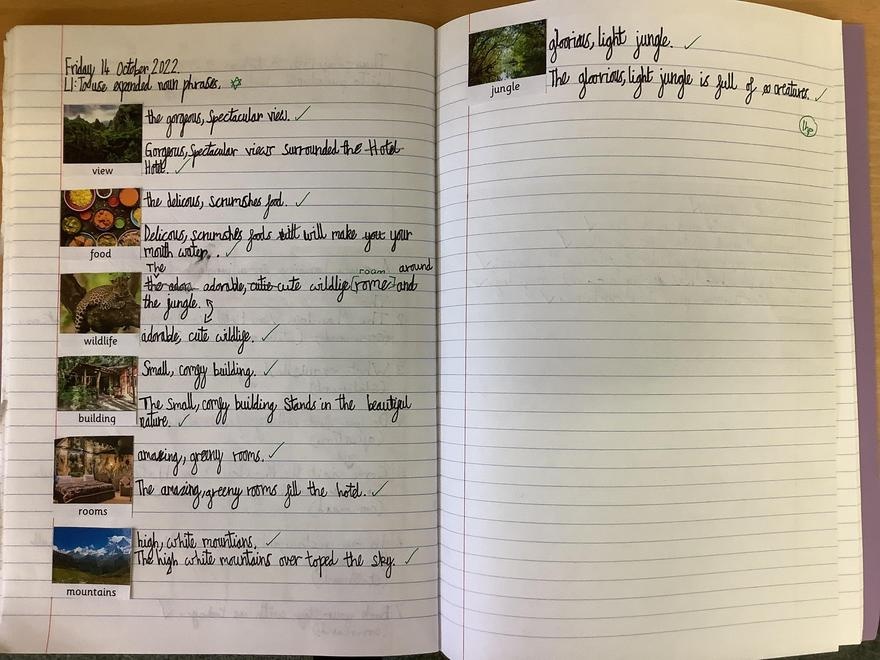 Friday 14 October 2022.
LI: To use expanded noun phrases.
view
the gorgeous, spectacular view. ✓
Gorgeous, spectacular views surrounded the Hotel
Hotel. ✓
food
the delicous, scrumshes food. ✓
Delicous, scrumshes foods will make your
mouth water. ✓
wildlife
The
roam
around
adorable, cute wildlife [rome] and
the jungle.
adorable, cute wildlife. ✓
building
Small, comfy building. ✓
The small, comfy building, stands in the beautiful
nature. ✓
rooms
amazing, greeny rooms. ✓
The amazing, greeny rooms fill the hotel. ✓
mountains
high, white mountians. ✓
The high white mountains over toped the sky. ✓
jungle
gloorious, light jungle. ✓
The gloorious, light jungle is full of creatures. ✓